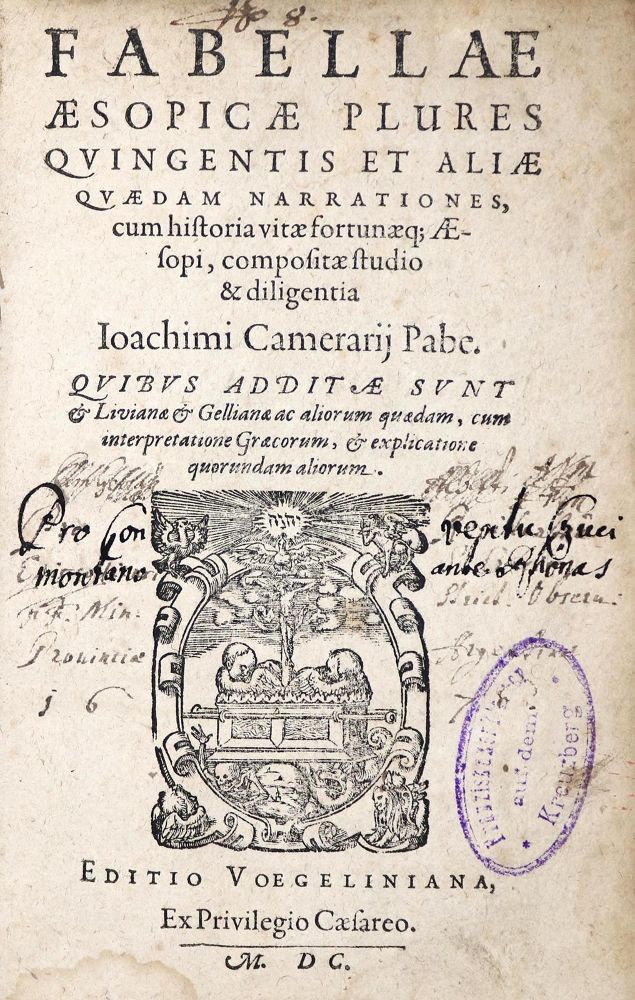 No 8.
FABELLAE
ÆSOPICÆ PLURES
QVINGENTIS ET ALIÆ
QVÆDAM NARRATIONES,
cum hiſtoria vitæ fortunæq; Æ-
ſopi, compoſitæ ſtudio
& diligentia
Ioachimi Camerarij Pabe.
QVIBVS ADDITÆ SVNT
& Livianæ & Gellianæ ac aliorum quædam, cum
interpretatione Græcorum, & explicatione
quorundam aliorum.
יהוה
Pro Con
montano
Min.
Provintiæ
1 6
Strict. Observ.
auf dem
Kreuzberg
EDITIO VOEGELINIANA,
Ex Privilegio Cæſareo.
M. DC.